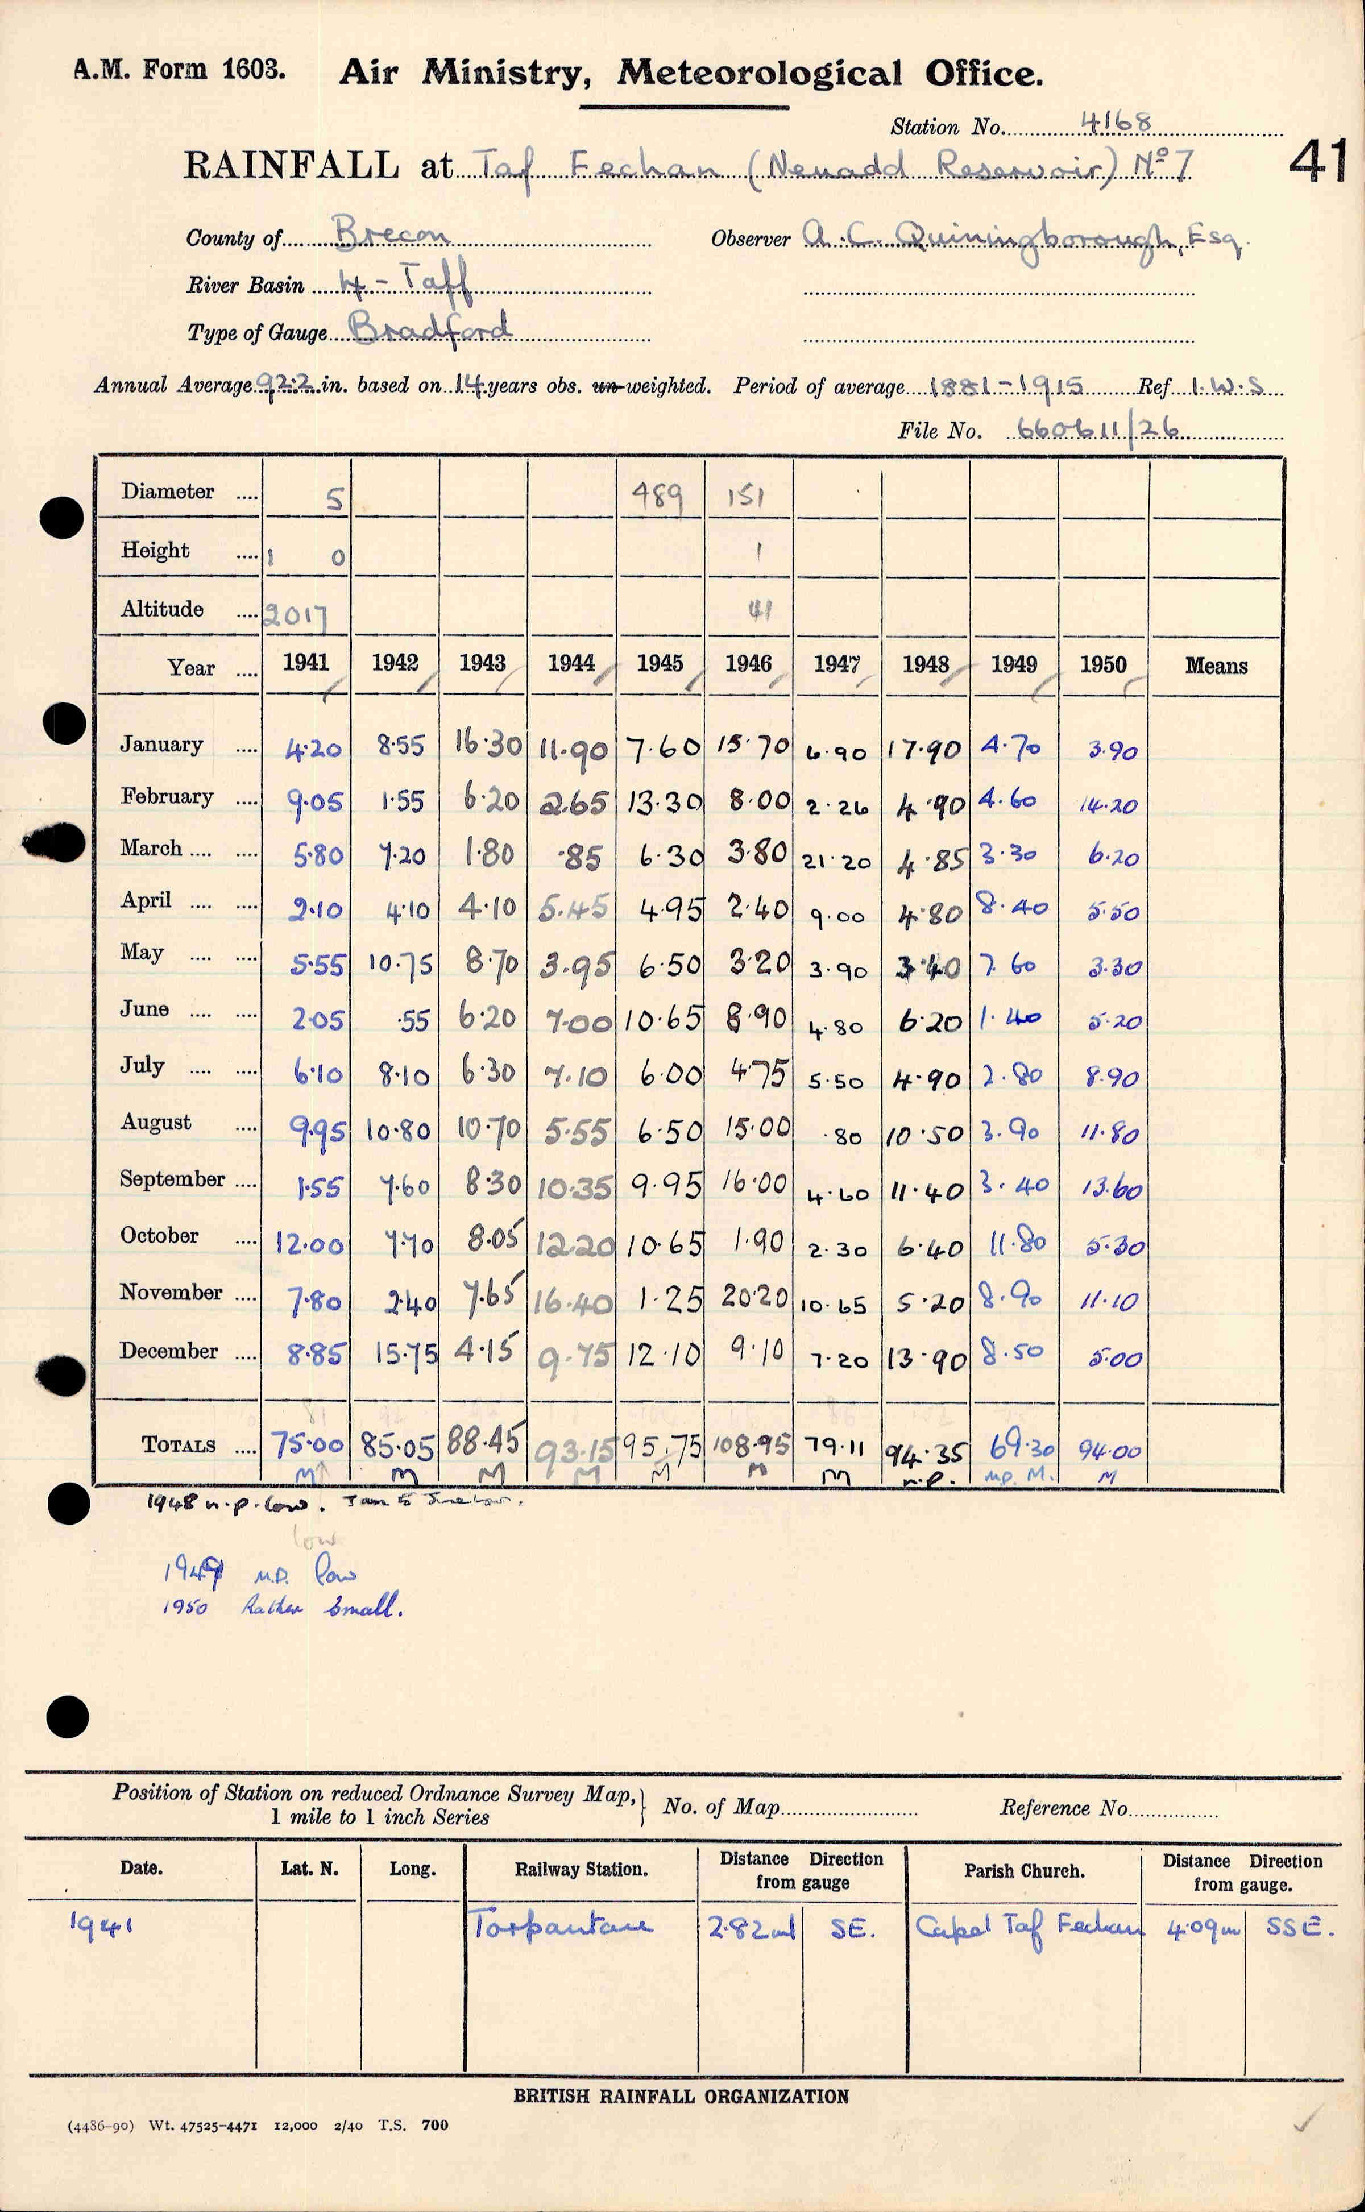 A.M. Form 1603. Air Ministry, Meteorological Office.
Station No. 4168
RAINFALL at Taf Fechan (Neuadd Reservoir) Nº 7 41
County of Brecon Observer A. C. Quiningborough, Esq.
River Basin 4 - Taff
Type of Gauge Bradford
Annual Average 92.2 in. based on 14 years obs. un-weighted. Period of average 1881-1915 Ref I.W.S
File No. 660611/26
Diameter .... 5 489 151
Height .... 1 0 1
Altitude .... 2017 41
Year .... 1941 1942 1943 1944 1945 1946 1947 1948 1949 1950 Means
January .... 4.20 8.55 16.30 11.90 7.60 15.70 6.90 17.90 4.70 3.90
February .... 9.05 1.55 6.20 2.65 13.30 8.00 2.26 4.90 4.60 14.20
March .... .... 5.80 7.20 1.80 .85 6.30 3.80 21.20 4.85 3.30 6.20
April .... .... 2.10 4.10 4.10 5.45 4.95 2.40 9.00 4.80 8.40 5.50
May .... .... 5.55 10.75 8.70 3.95 6.50 3.20 3.90 3.40 7.60 3.30
June .... .... 2.05 .55 6.20 7.00 10.65 8.90 4.80 6.20 1.40 5.20
July .... .... 6.10 8.10 6.30 7.10 6.00 4.75 5.50 4.90 2.80 8.90
August .... 9.95 10.80 10.70 5.55 6.50 15.00 .80 10.50 3.90 11.80
September .... 1.55 7.60 8.30 10.35 9.95 16.00 4.60 11.40 3.40 13.60
October .... 12.00 7.70 8.05 12.20 10.65 1.90 2.30 6.40 11.80 5.30
November .... 7.80 2.40 7.65 16.40 1.25 20.20 10.65 5.20 8.90 11.10
December .... 8.85 15.75 4.15 9.75 12.10 9.10 7.20 13.90 8.50 5.00
TOTALS .... 75.00 85.05 88.45 93.15 95.75 108.95 79.11 94.35 69.30 94.00
M M M M M M M n.p. n.p. M. M
1948 n.p. low. Jan 5
low
1949 n.p. low
1950 Rather Small.
Position of Station on reduced Ordnance Survey Map, 1 mile to 1 inch Series } No. of Map Reference No.
Date. Lat. N. Long. Railway Station. Distance Direction from gauge Parish Church. Distance Direction from gauge.
1941 Torpantau 2.82 ml SE. Capel Taf Fechan 4.09 m SSE.
BRITISH RAINFALL ORGANIZATION
(4486-90) Wt. 47525-4471 12,000 2/40 T.S. 700